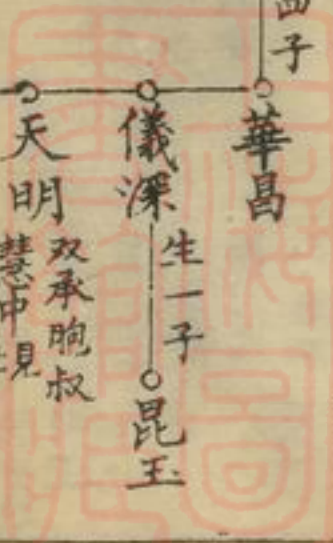 四子
華昌
儀深
生一子
昆玉
天明
双承晌叔
慧中規